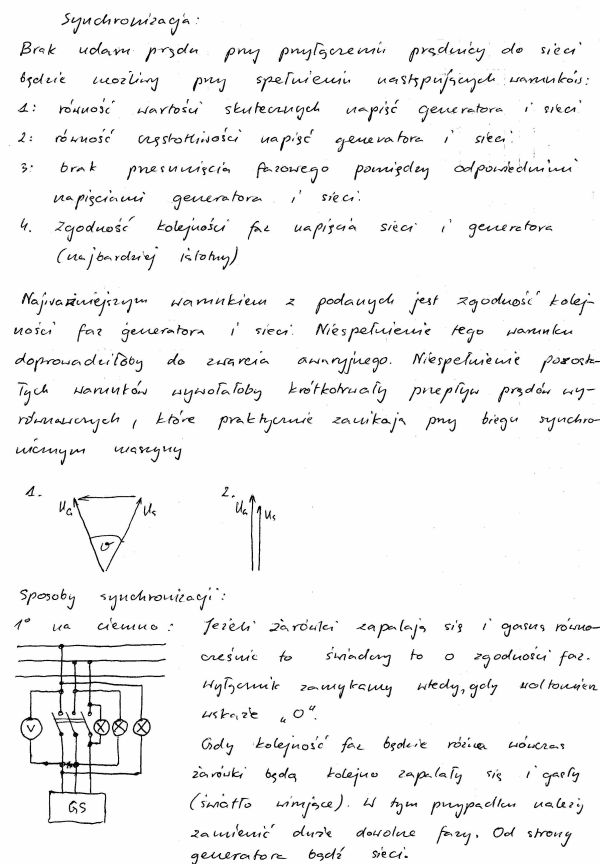 Synchronizacja:
Brak udaru prądu przy przyłączeniu prądnicy do sieci
będzie możliwy przy spełnieniu następujących warunków:
1: równość wartości skutecznych napięć generatora i sieci
2: równość częstotliwości napięć generatora i sieci.
3: brak przesunięcia fazowego pomiędzy odpowiednimi
napięciami generatora i sieci.
4. Zgodność kolejności faz napięcia sieci i generatora
(najbardziej istotny)
Najważniejszym warunkiem z podanych jest zgodność kolej-
ności faz generatora i sieci. Niespełnienie tego warunku
doprowadziłoby do zwarcia awaryjnego. Niespełnienie pozosta-
łych warunków wywołałoby krótkotrwały przepływ prądów wy-
równawczych, które praktycznie zanikają przy biegu synchro-
nicznym maszyny
1. 2.
UG Us UG Us
ϑ
Sposoby synchronizacji:
1° na ciemno: Jeżeli żarówki zapalają się i gasną równo-
cześnie to świadczy to o zgodności faz.
Wyłącznik zamykamy wtedy, gdy woltomierz
wskaże „0“.
Gdy kolejność faz będzie różna wówczas
żarówki będą kolejno zapalały się i gasły
(światło wirujące). W tym przypadku należy
zamienić dwie dowolne fazy. Od strony
generatora bądź sieci.
V
GS